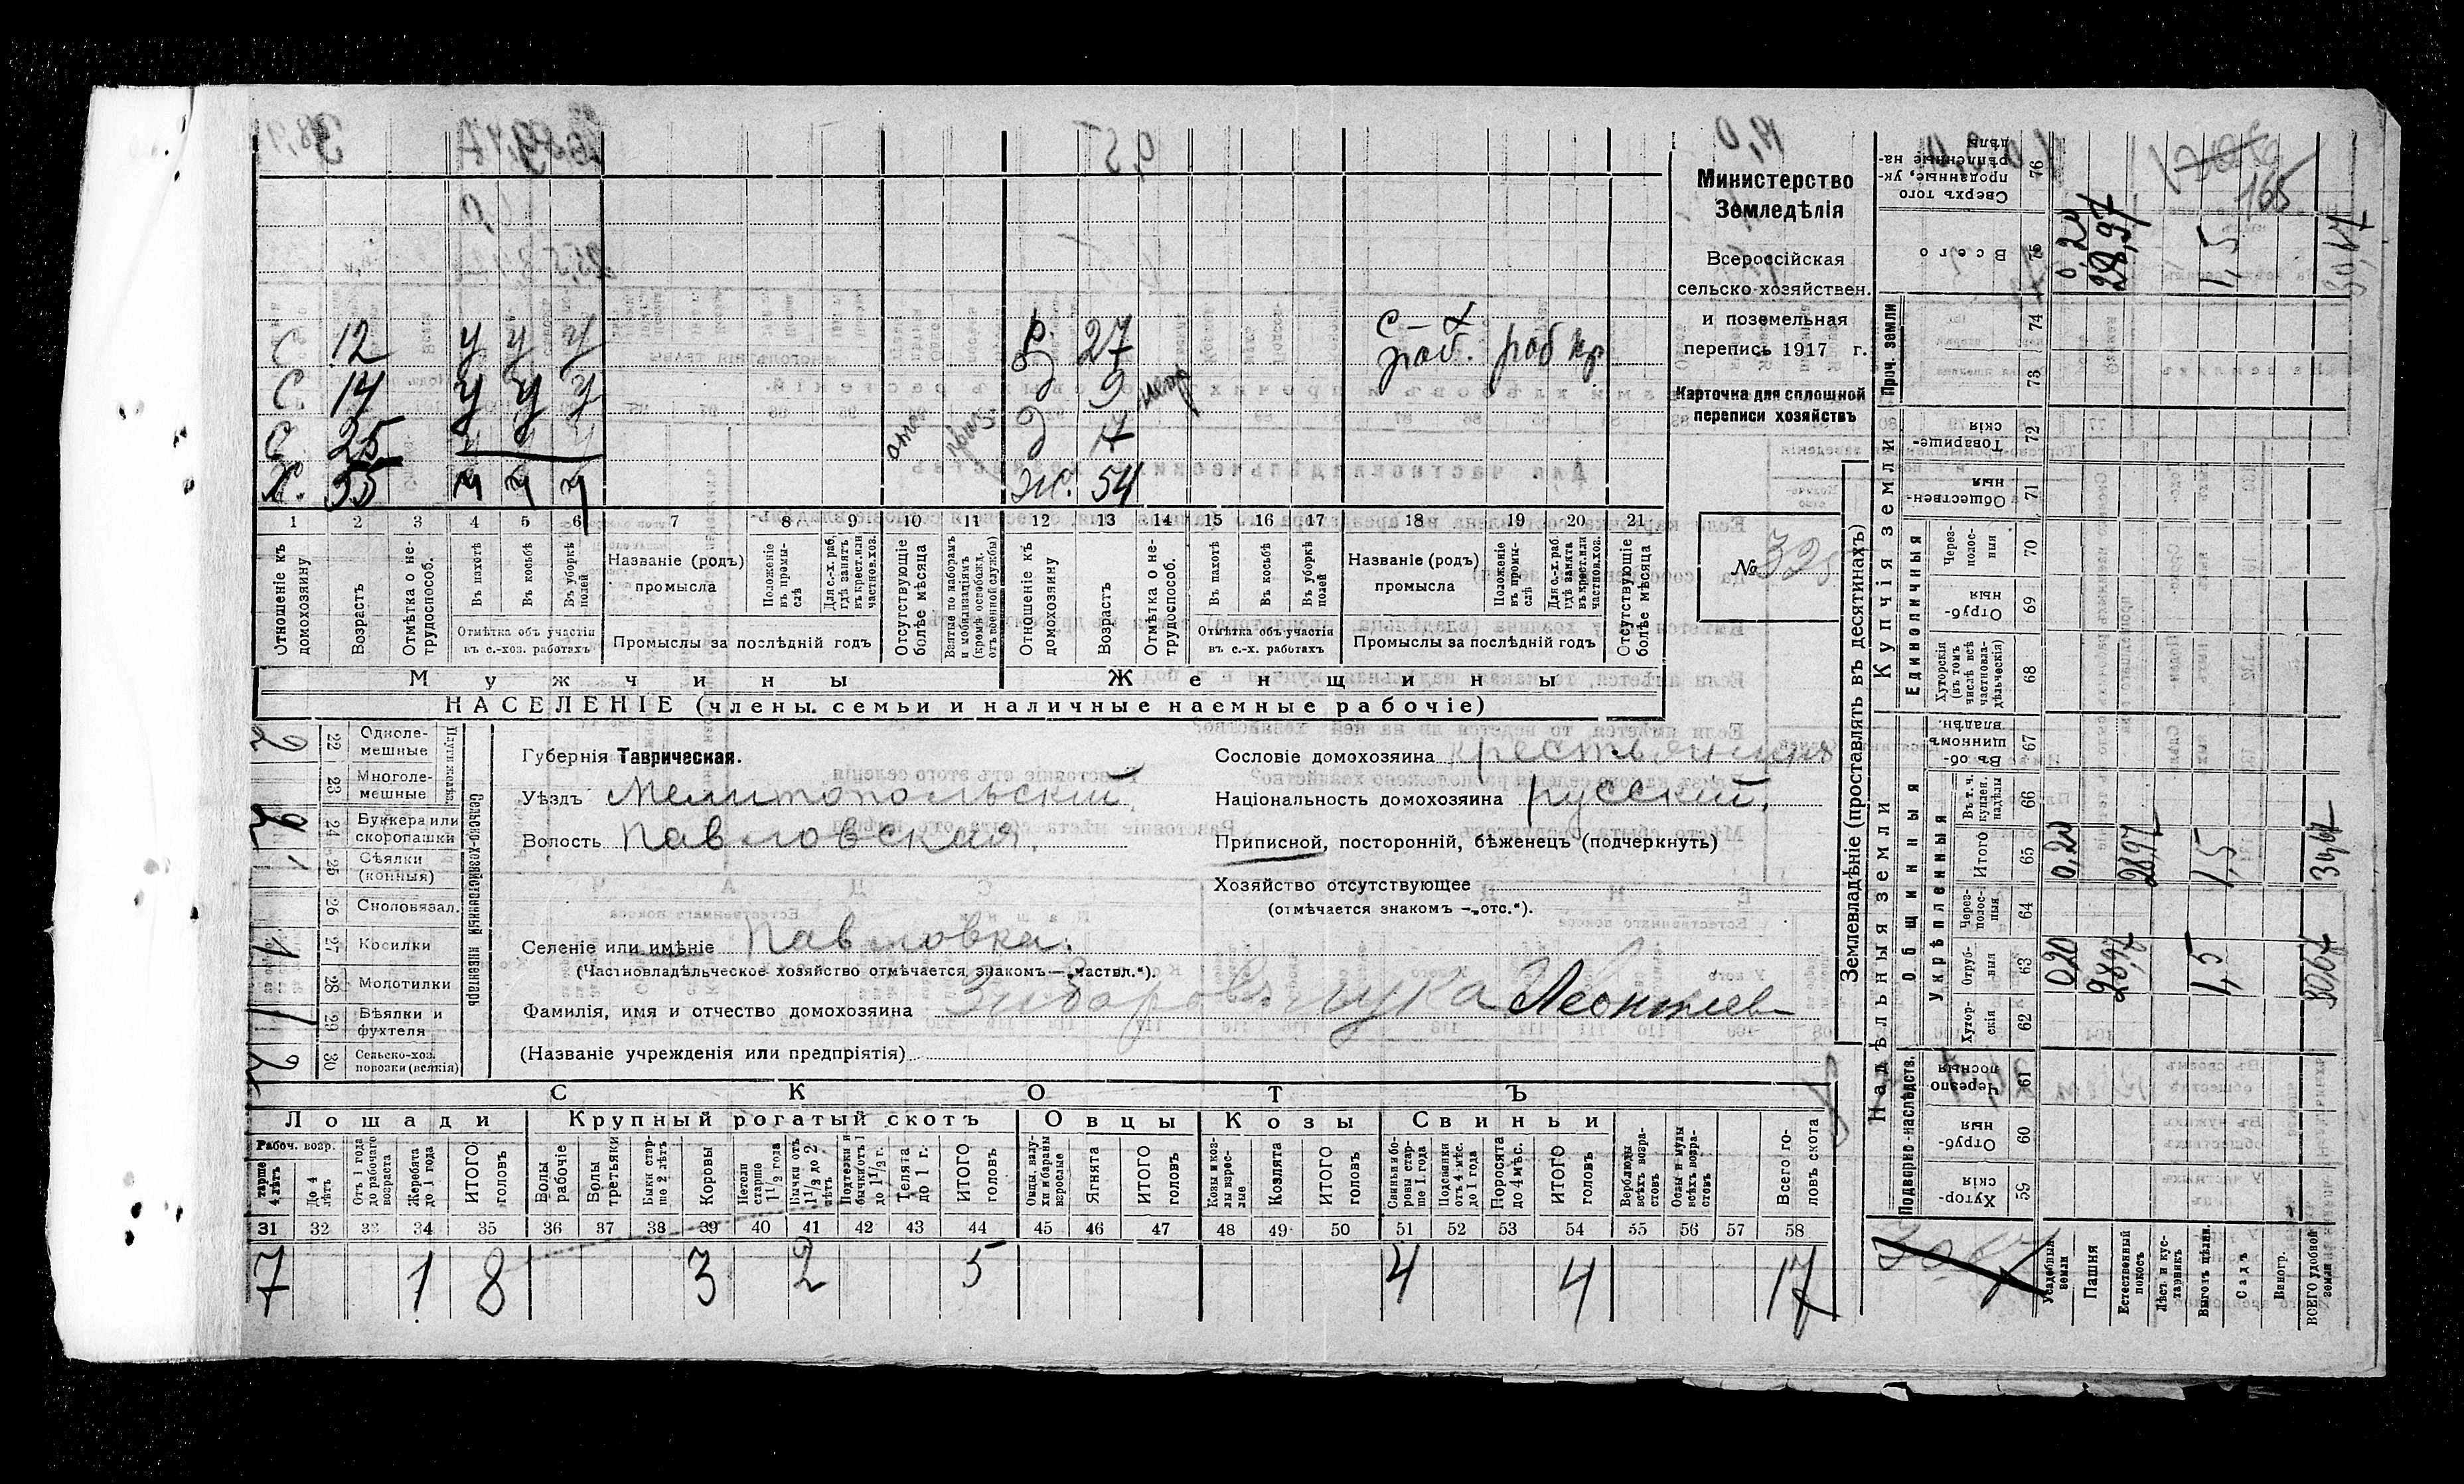 С. 12 у у у
С. 14 у у у
С. 25 ч ч ч
Х. 55 ч ч ч
27 С-х раб. раб кр
д 9
д 17
ж. 54
1 2 3 4 5 6 7 8 9 10 11 12 13 14 15 16 17 18 19 20 21
Отношеніе къ домохозяину
Возрастъ
Отмѣтка о нетрудоспособ.
Въ пахотѣ
Въ косьбѣ
Въ уборкѣ полей
Отмѣтка объ участіи въ с.-хоз. работахъ
Названіе (родъ) промысла
Положеніе въ промыслѣ
Для с.-х. раб. гдѣ занятъ въ крест. или частнов. хоз.
Промыслы за послѣдній годъ
Отсутствующіе болѣе мѣсяца
Взятые по наборамъ и мобилизаціямъ (кромѣ освобожд. отъ военной службы)
Отношеніе къ домохозяину
Возрастъ
Отмѣтка о нетрудоспособ.
Въ пахотѣ
Въ косьбѣ
Въ уборкѣ полей
Отмѣтка объ участіи въ с.-х. работахъ
Названіе (родъ) промысла
Положеніе въ промыслѣ
Для с.-х. раб. гдѣ занята въ крест. или частнов. хоз.
Промыслы за послѣдній годъ
Отсутствующіе болѣе мѣсяца
Мужчины Женщины
НАСЕЛЕНІЕ (члены семьи и наличные наемные рабочіе)
Министерство
Земледѣлія
Всероссійская
сельско-хозяйствен.
и поземельная
перепись 1917 г.
Карточка для сплошной
переписи хозяйствъ
№ 325
Сельско-хозяйственный инвентарь
22 Однолемешные 2
23 Многолемешные
24 Буккера или скоропашки 2
25 Сѣялки (конныя) 1
26 Сноповязал.
27 Косилки 1
28 Молотилки
29 Вѣялки и фухтеля 1
30 Сельско-хоз. повозки (всякія) 2
Губернія Таврическая.
Уѣздъ Мелитопольскій.
Волость Павловская.
Селеніе или имѣніе Павловка.
(Частновладѣльческое хозяйство отмѣчается знакомъ—„частвл.“).
Фамилія, имя и отчество домохозяина Леонтіев
(Названіе учрежденія или предпріятія)
Сословіе домохозяина крестьянинъ
Національность домохозяина русскій.
Приписной, посторонній, бѣженецъ (подчеркнуть)
Хозяйство отсутствующее
(отмѣчается знакомъ —„отс.“).
СКОТЪ
Лошади Крупный рогатый скотъ Овцы Козы Свиньи
Рабоч. возр.
старше 4 лѣтъ
До 4 лѣтъ
Отъ 1 года до рабочаго возраста
Жеребята до 1 года
ИТОГО головъ
Волы рабочіе
Волы третьяки
Быки старше 2 лѣтъ
Коровы
Нетели старше 1½ года
Бычки отъ 1½ до 2 лѣтъ
Подтелки и бычки отъ 1 до 1½ г.
Телята до 1 г.
ИТОГО головъ
Овцы, валухи и бараны взрослые
Ягнята
ИТОГО головъ
Козы и козлы взрослые
Козлята
ИТОГО головъ
Свиньи и боровы старше 1 года
Подсвинки отъ 4 мѣс. до 1 года
Поросята до 4 мѣс.
ИТОГО головъ
Верблюды всѣхъ возрастовъ
Ослы и мулы всѣхъ возрастовъ
Всего головъ скота
31 32 33 34 35 36 37 38 39 40 41 42 43 44 45 46 47 48 49 50 51 52 53 54 55 56 57 58
7 1 8 3 2 5 4 4 17
Землевладѣніе (проставлять въ десятинахъ)
Надѣльныя земли Купчія земли Проч. земли
Подворно-наслѣдств. Общинныя Единоличныя
Укрѣпленныя
Хуторскія 59
Отрубныя 60
Черезполосныя 61
Хуторскія 62
Отрубныя 63
Черезполосныя 64
Итого 65
Въ т. ч. куплен. надѣлы 66
Въ общинномъ владѣн. 67
Хуторскія (въ томъ числѣ всѣ частновладѣльческія) 68
Отрубныя 69
Черезполосныя 70
Общественныя 71
Товарищескія 72
73
74
Всего 75
Сверхъ того проданные, укрѣпленные надѣлы 76
Усадебныя земли 0,20 0,20 0,20
Пашня 28,97 28,97 28,97
Естественный покосъ
Лѣсъ и кустарникъ
Выгонъ цѣлин. 1,5 1,5 1,5
Садъ
Виногр.
ВСЕГО удобной земли 30,67 30,67 30,67
165